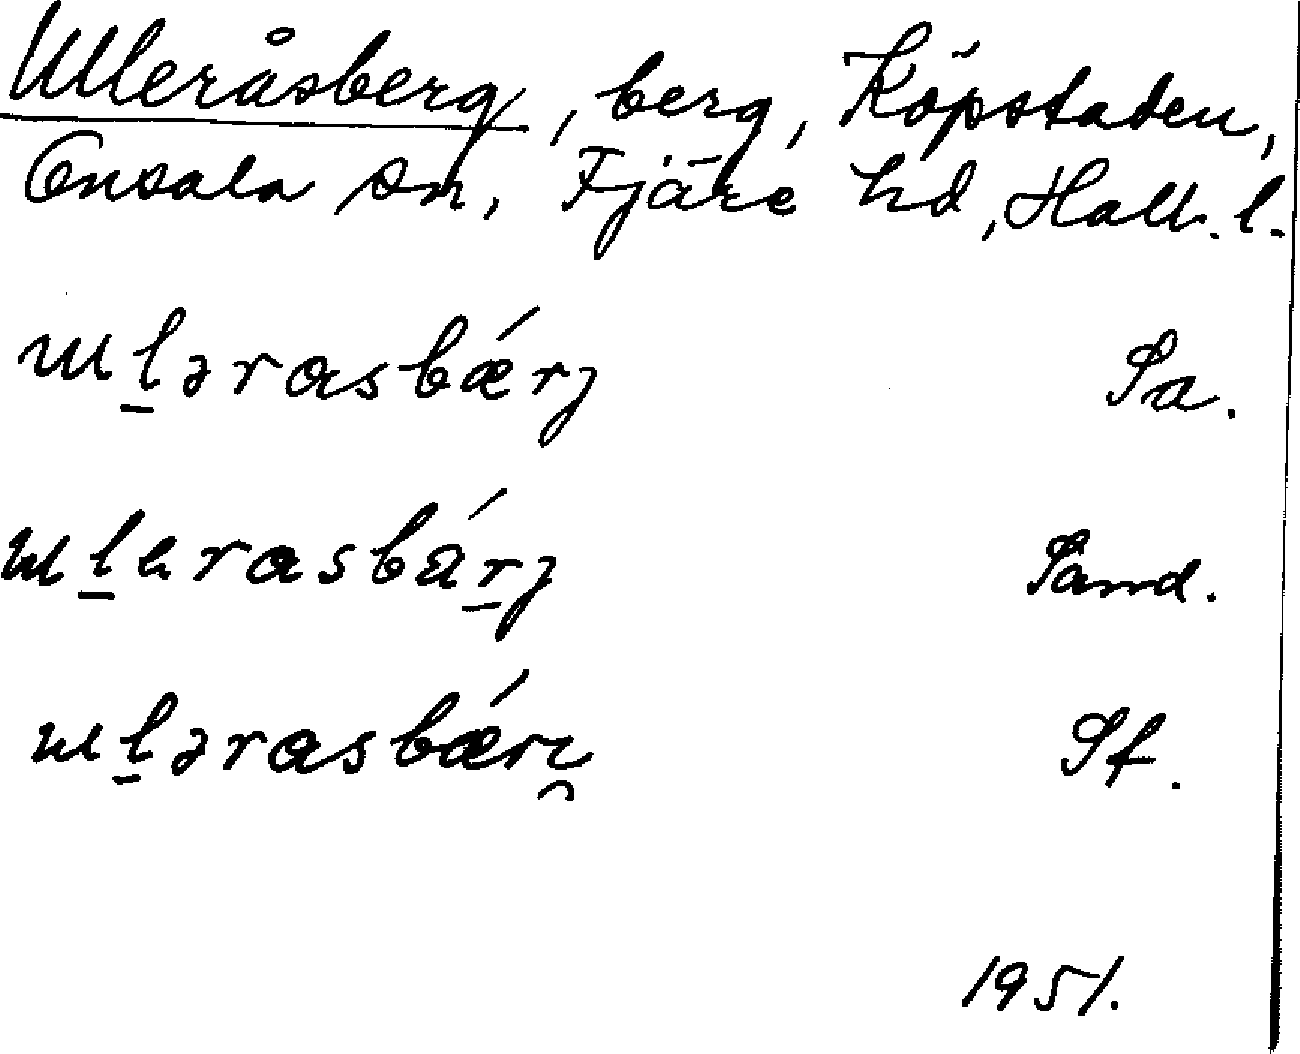 Ulleråsberg, berg, Köpstaden,
Onsala sn, Fjäre hd, Hall. l.
ɯl̠ərɑsbǽrj Sa.
ɯl̠erɑsbár̠j Sand.
ɯl̠ərɑsbǽri̯ Sf.
1951.